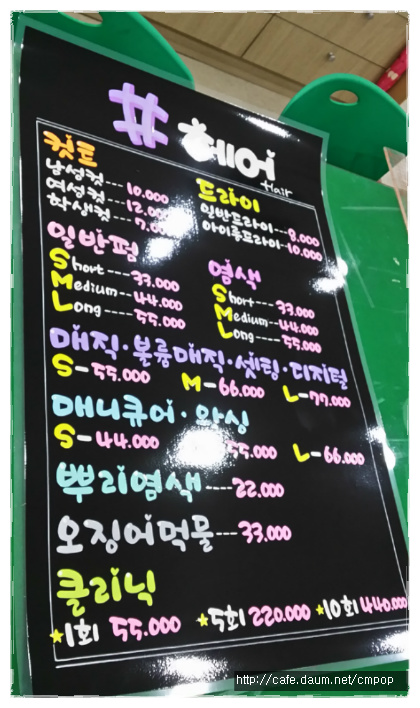 # 헤어
Hair
컷트
남성컷---10.000
여성컷---12.000
학생컷---9.000
드라이
일반드라이---8.000
아이롱드라이--10.000
일반펌
Short----33.000
Medium--44.000
Long----55.000
염색
Short----33.000
Medium--44.000
Long----55.000
매직·볼륨매직·셋팅·디지털
S-55.000 M-66.000 L-77.000
매니큐어·왁싱
S-44.000 55.000 L-66.000
뿌리염색----22.000
오징어먹물---33.000
클리닉
★1회 55.000 ★5회 220.000 ★10회 440.000
http://cafe.daum.net/cmpop